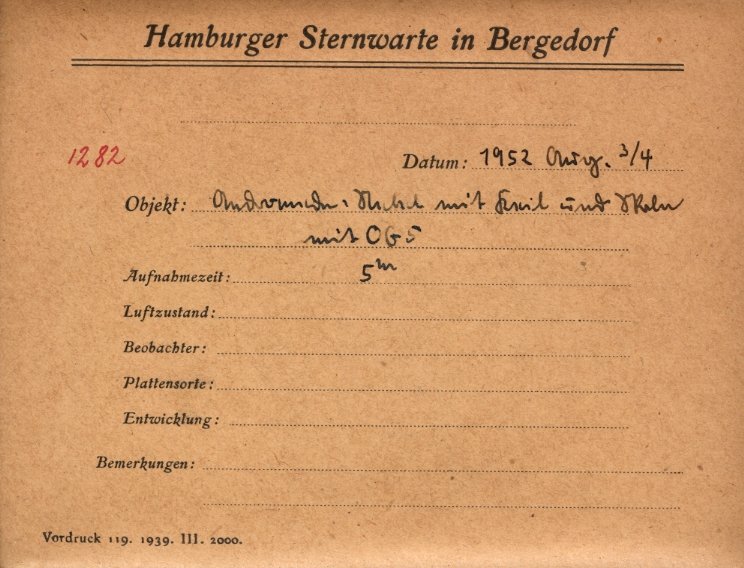 Hamburger Sternwarte in Bergedorf
1282
Datum: 1952 Aug. 3/4
Objekt: Andromeda-Nebel mit Keil und
mit OG5
Aufnahmezeit: 5m
Luftzustand:
Beobachter:
Plattensorte:
Entwicklung:
Bemerkungen:
Vordruck 119. 1939. III. 2000.